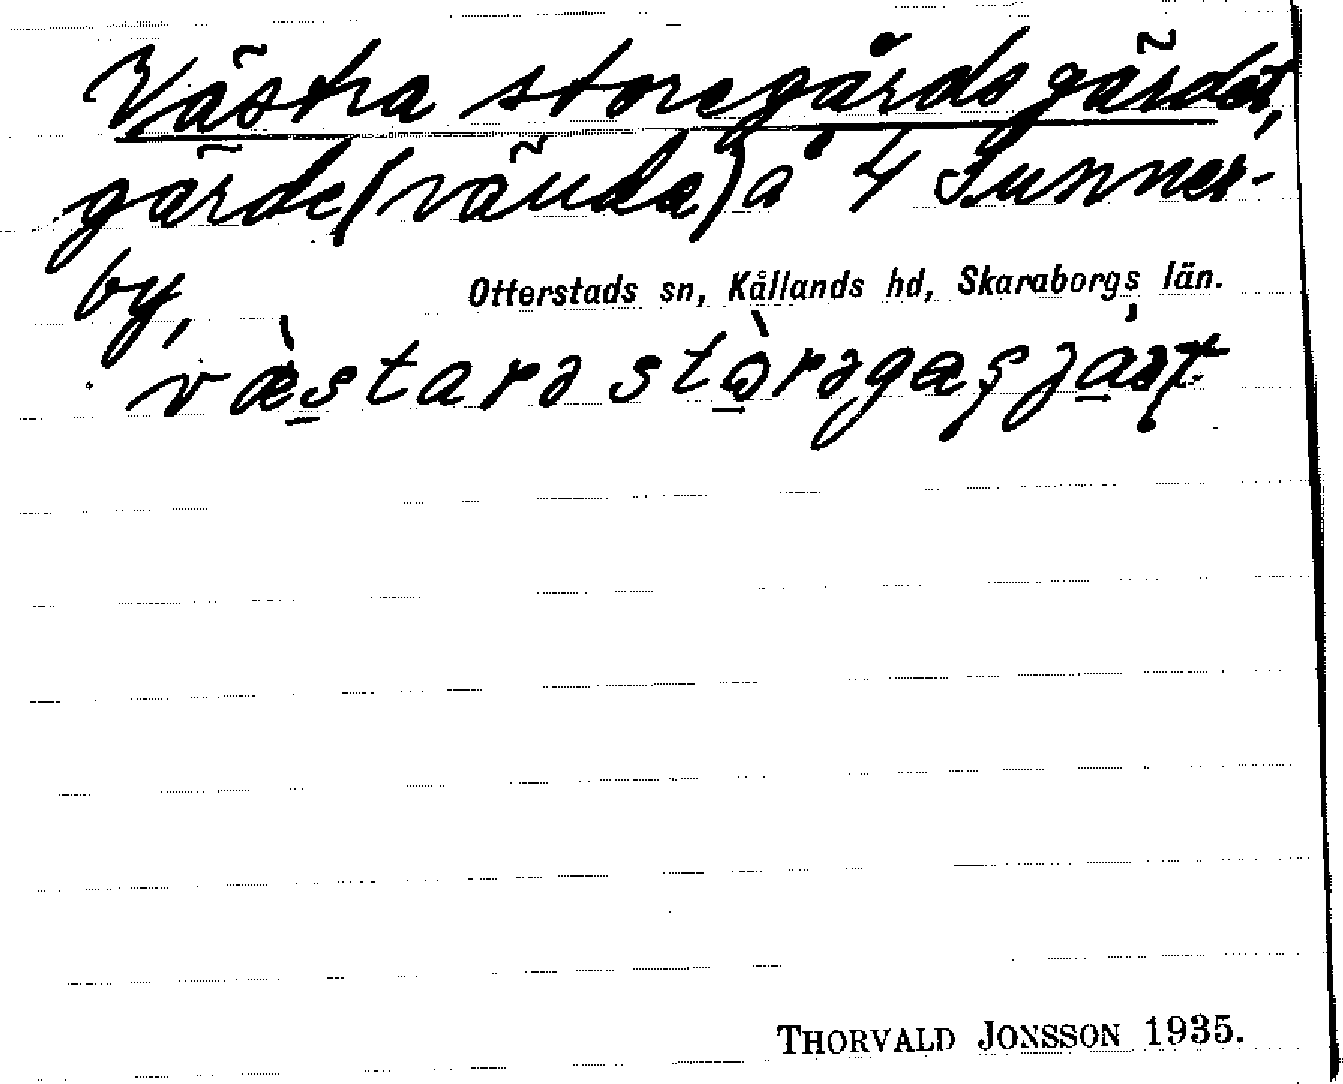 Västra storegårdsgärdet,
gärde (vända) å 4 Sunner-
by,
Otterstads sn, Kållands hd, Skaraborgs län.
THORVALD JONSSON 1935.